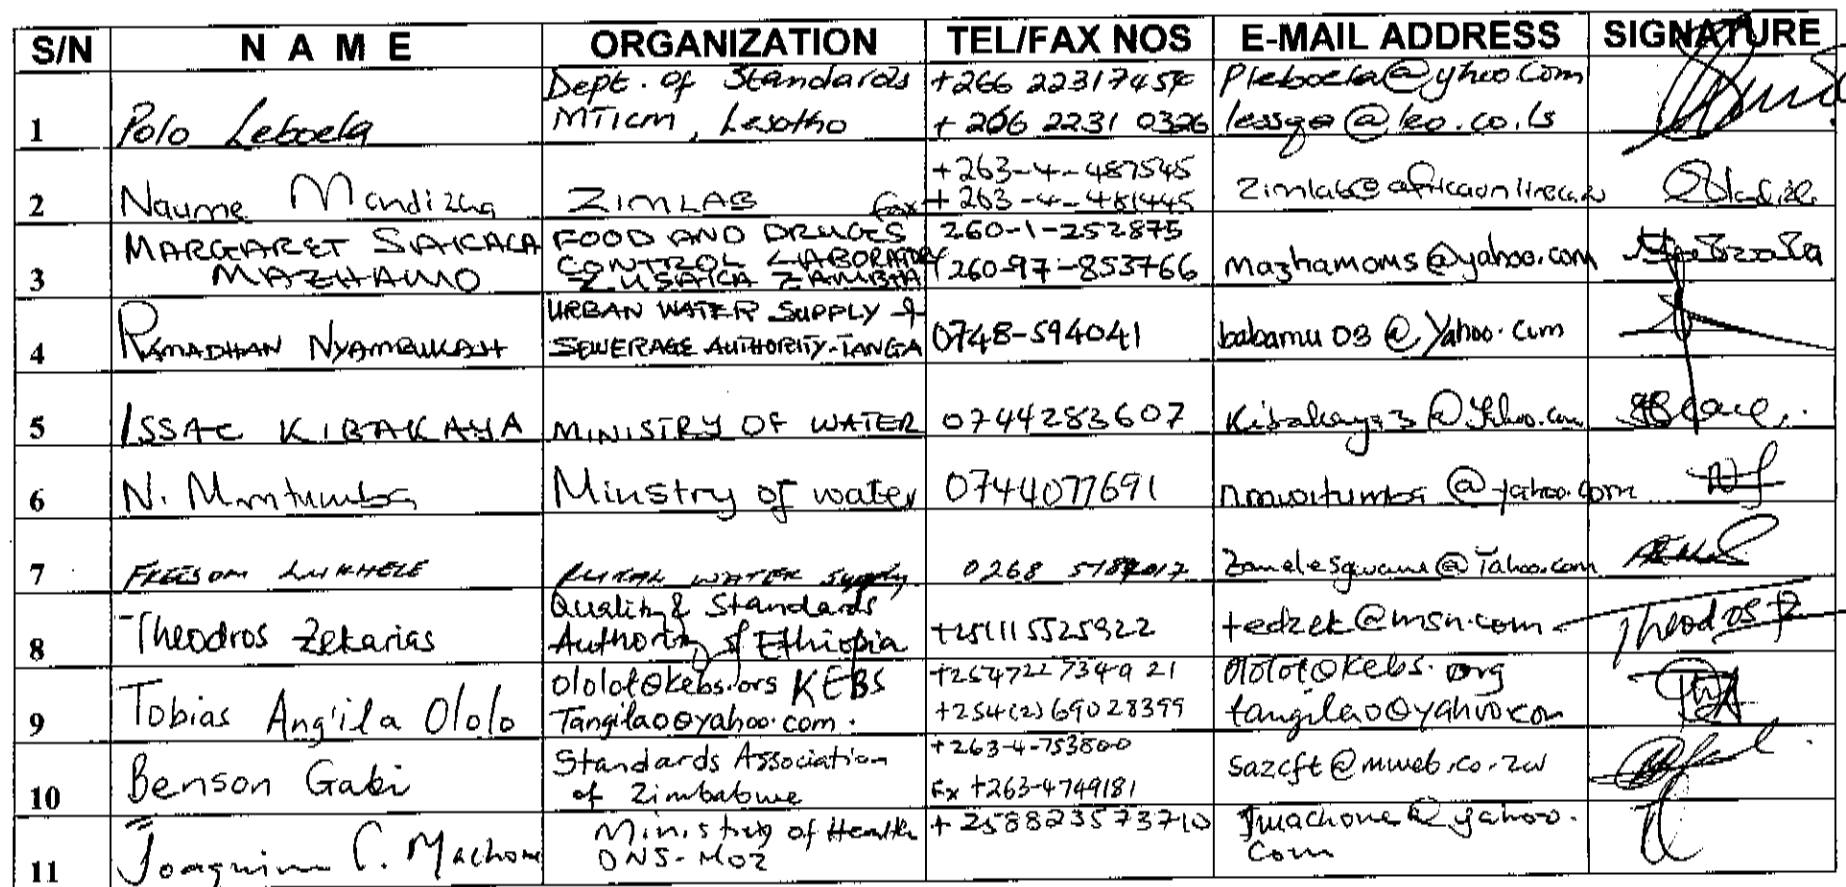 S/N N A M E ORGANIZATION TEL/FAX NOS E-MAIL ADDRESS SIGNATURE
1 Polo Leboela Dept. of Standards MTICM, Lesotho +266 22317454 +266 2231 0326 pleboela@yhoo.com @leo.co.ls
2 Naume ZIMLAB +263-4-487545 Fax +263-4-481445
3 MARGARET SAKALA MAZHAMO FOOD AND DRUGS CONTROL LABORATORY LUSAKA ZAMBIA 260-1-252875 260-97-853766 mazhamoms@yahoo.com
4 RAMADHAN NYAMBUKAH URBAN WATER SUPPLY & SEWERAGE AUTHORITY-TANGA 0748-594041 babamu03@Yahoo.com
5 ISSAC KIBAKAYA MINISTRY OF WATER 0744283607
6 N. Minstry of water 0744077691 @yahoo.com
7 FREEDOM LUKHELE RURAL WATER SUPPLY 0268
8 Theodros Zekarias Quality & Standards Authority of Ethiopia +251115525922 tedzek@msn.com Theodros
9 Tobias Ang'ila Ololo ololot@kebs.org KEBS Tangilao@yahoo.com. +254722734921 +254(2)69028399 ololot@kebs.org tangilao@yahoo.com
10 Benson Gabi Standards Association of Zimbabwe +263-4-753800 Fx +263-4749181 sazcft@mweb.co.zw
11 Joaquim C. Ministry of Health DNS-MOZ +258823573710 Jmachone@yahoo.com